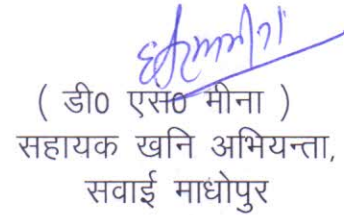 ( डी0 एस0 मीना )
सहायक खनि अभियन्ता,
सवाई माधोपुर